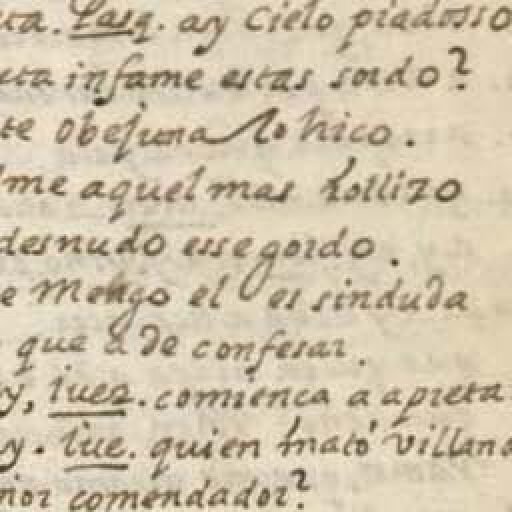 uta. Pasq. ay Cielo piadosso
uta infame estas sordo?
te obejuna lo hico.
me aquel mas Rollizo
desnudo esse gordo.
e Mengo el es sinduda
que a de confesar.
y, juez. comienca a apreta
y. jue. quien mató villano
ñor comendador?